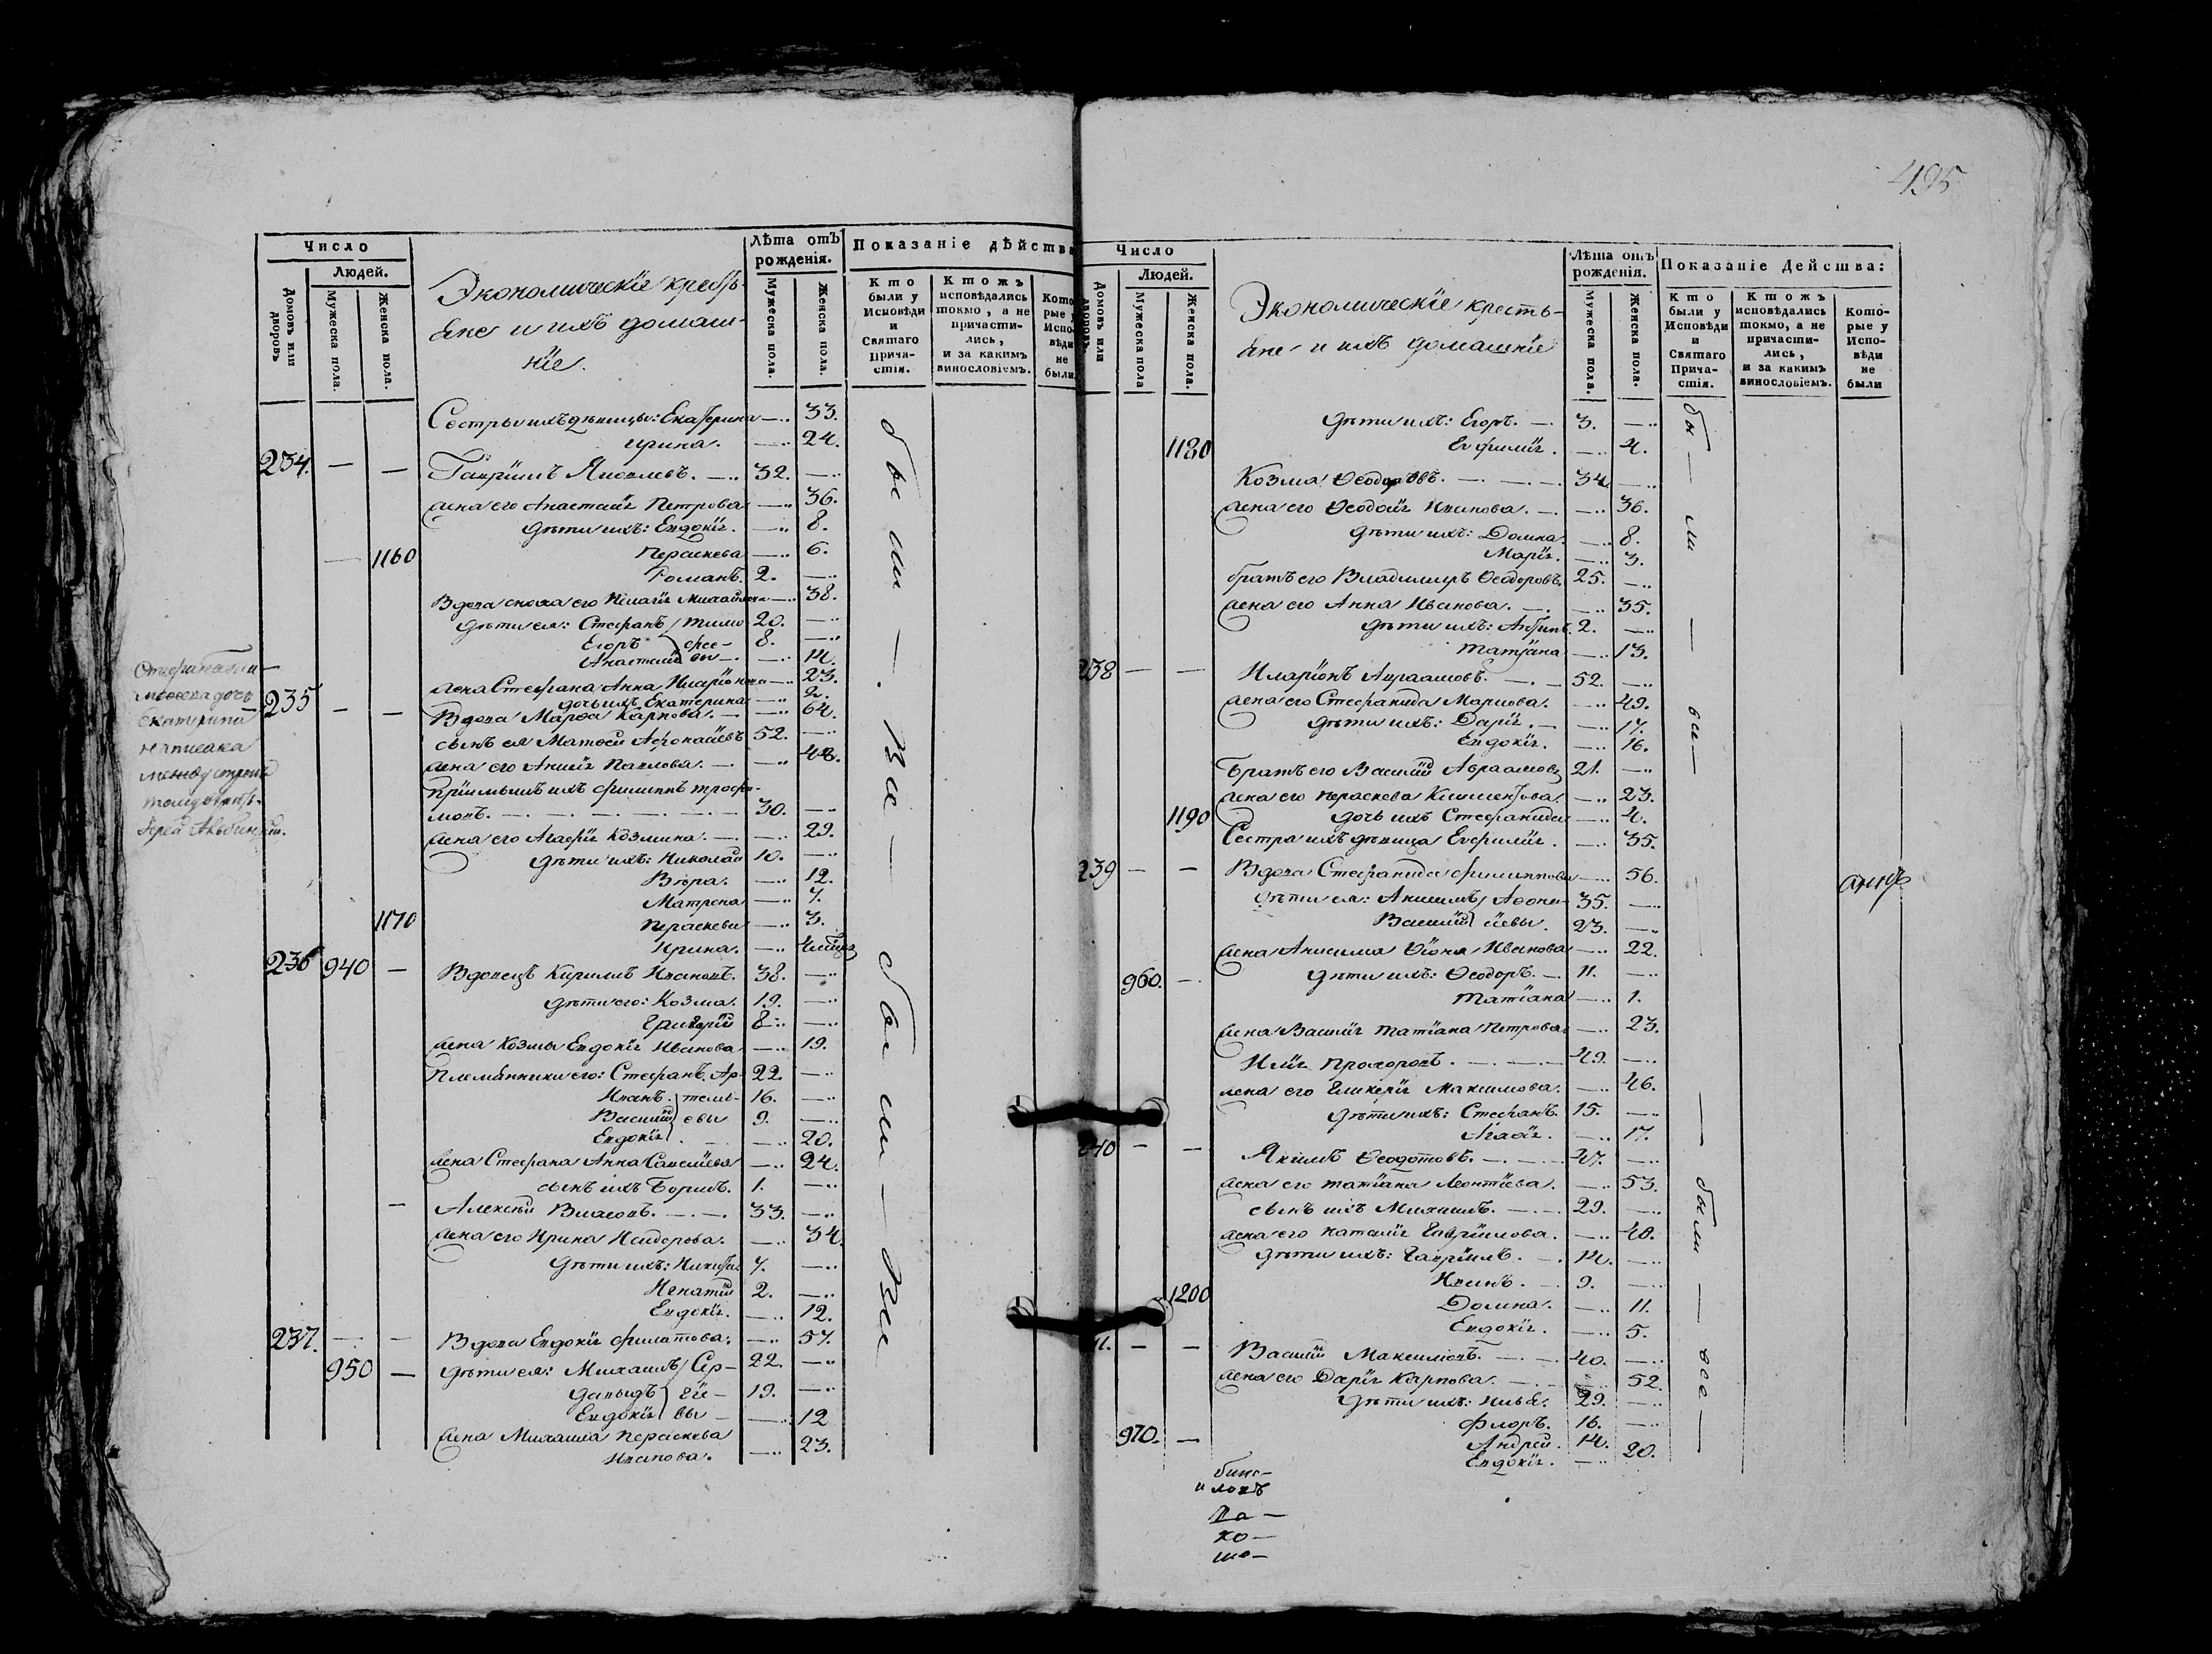 495
Число
Людей.
Домовъ или дворовъ
Мужеска пола.
Женска пола.
Экономическіе кресть-
яне и ихъ домаш-
ніе.
Лѣта отъ рожденія.
Мужеска пола.
Женска пола.
Показаніе дѣйства
Кто были у Исповѣди и Святаго Прича-стія.
Ктожъ исповѣдались токмо, а не причасти-лись, и за какимъ винословіемъ.
Кото рые у Испо-вѣди не были
Сестры ихъ дѣвицы: Екатерина —.. 33.
Ирина. —.. 24.
234. — — Гавріилъ Яковлевъ. —.. 32. —..
жена его Анастасія Петрова —.. 36.
дѣти ихъ: Евдокія. —.. 8.
— 1160 Параскева —.. 6.
Романъ. 2. —..
Вдова сноха его Пелагія Михайлова —.. 38.
дѣти ея: Стефанъ Тимо 20. —..
Егоръ фее- 8. —..
Анастасія вы —. —.. 14.
жена Стефана Анна Иларіонова —.. 23.
дочь ихъ Екатерина —.. 2.
235 — — Вдова Марѳа Карпова. — —.. 64.
сынъ ея Матѳей Аѳонасіевъ 52. —..
жена его Анисія Павлова. —. —.. 48.
Пріимышъ ихъ Филиппъ Трофи-
мовъ. —. —. —. —. —. — 30. —..
жена его Агафія Козмина. —. —.. 29.
дѣти ихъ: Николай 10. —..
Вѣра. —.. 12.
Матрена —.. 7.
1170 Параскева —.. 3.
Ирина. —..
236 940 — Вдовецъ Кирилъ Ивановъ. 38. —..
дѣти его: Козма. 19. —..
Григорій 8 —..
жена Козмы Евдокія Иванова —.. 19.
Племянники его: Стефанъ Ар- 22. —..
Иванъ. темь- 16. —..
Василій евы 9. —..
Евдокія . —.. 20.
жена Стефана Анна Савеліева —.. 24.
сынъ ихъ Борисъ. 1. —..
— Алексѣй Власовъ. —. —. 33. —..
жена его Ирина Исидорова. —.. 34.
дѣти ихъ: Никита 7. —..
Игнатій 2. —..
Евдокія. —.. 12.
237. — — Вдова Евдокія Филатова. —.. 57.
950 — дѣти ея: Михаилъ Сер- 22. —..
Давыдъ гіе- 19. —..
Евдокія вы — —.. 12
жена Михаила Параскева
Иванова. —.. 23.
бы ли — Все — были — Все
дочь
Екатерина
написана
между строкъ
Число
Людей.
Домовъ или дворовъ.
Мужеска пола
Женска пола.
Экономическіе кресть-
яне и ихъ домашніе
Лѣта отъ рожденія.
Мужеска пола.
Женска пола.
Показаніе Действа:
Кто были у Исповѣди и Святаго Прича-стія.
Ктожъ исповѣдались токмо, а не причасти-лись, и за какимъ винословіемъ.
Кото-рые у Испо-вѣди не были
дѣти ихъ: Егоръ. —. 3. —..
1180 Евфимія. —.. 4.
Козма Ѳеодоровъ. —. —. —. 34. —..
жена его Ѳеодосія Иванова. —. —.. 36.
дѣти ихъ: Домна. —.. 8.
Марія. —.. 3.
братъ его Владимиръ Ѳеодоровъ. 25. —..
жена его Анна Иванова. —. —.. 35.
дѣти ихъ: Антипъ. 2. —..
Татіана —.. 13.
238 — — Иларіонъ Авраамовъ. —. — 52. —..
жена его Стефанида Маркова. —.. 49.
дѣти ихъ: Дарія. —. —.. 17.
Евдокія. —.. 16.
Братъ его Василій Авраамовъ 21. —..
жена его Параскева Климентова. —.. 23.
1190 дочь ихъ Стефанида —.. 4.
Сестра ихъ дѣвица Евфимія. —.. 35.
239 — — Вдова Стефанида Филиппова —.. 56.
дѣти ея: Анисимъ Аѳона- 35. —..
Василій сіевы. 23. —..
жена Анисима Ѳіона Иванова —.. 22.
960. — дѣти ихъ: Ѳеодоръ. —. 11. —..
Татіана —.. 1.
жена Василія Татіана Петрова —.. 23.
Илія Прохоровъ. —. —. — 49. —..
жена его Гликерія Максимова. —.. 46.
дѣти ихъ: Стефанъ. 15. —..
Агаѳія. —.. 17.
240 — — Якимъ Ѳеодотовъ. —. —. — 47. —..
жена его Татіана Леонтіева. —.. 53.
сынъ ихъ Михаилъ. —. —. 29. —..
жена его Наталія Гавріилова. —.. 40.
дѣти ихъ: Гавріилъ. —. 14. —..
Иванъ. — 9. —..
1200 Домна. —.. 11.
Евдокія. —.. 5.
— — Василій Максимовъ. —. —. 40. —..
жена его Дарія Карпова. —. —.. 52.
дѣти ихъ: Илья. 29. —..
Флоръ. 16. —..
970. — Андрей. 14. —..
Евдокія. —.. 20.
бы — ли — все — были — все —